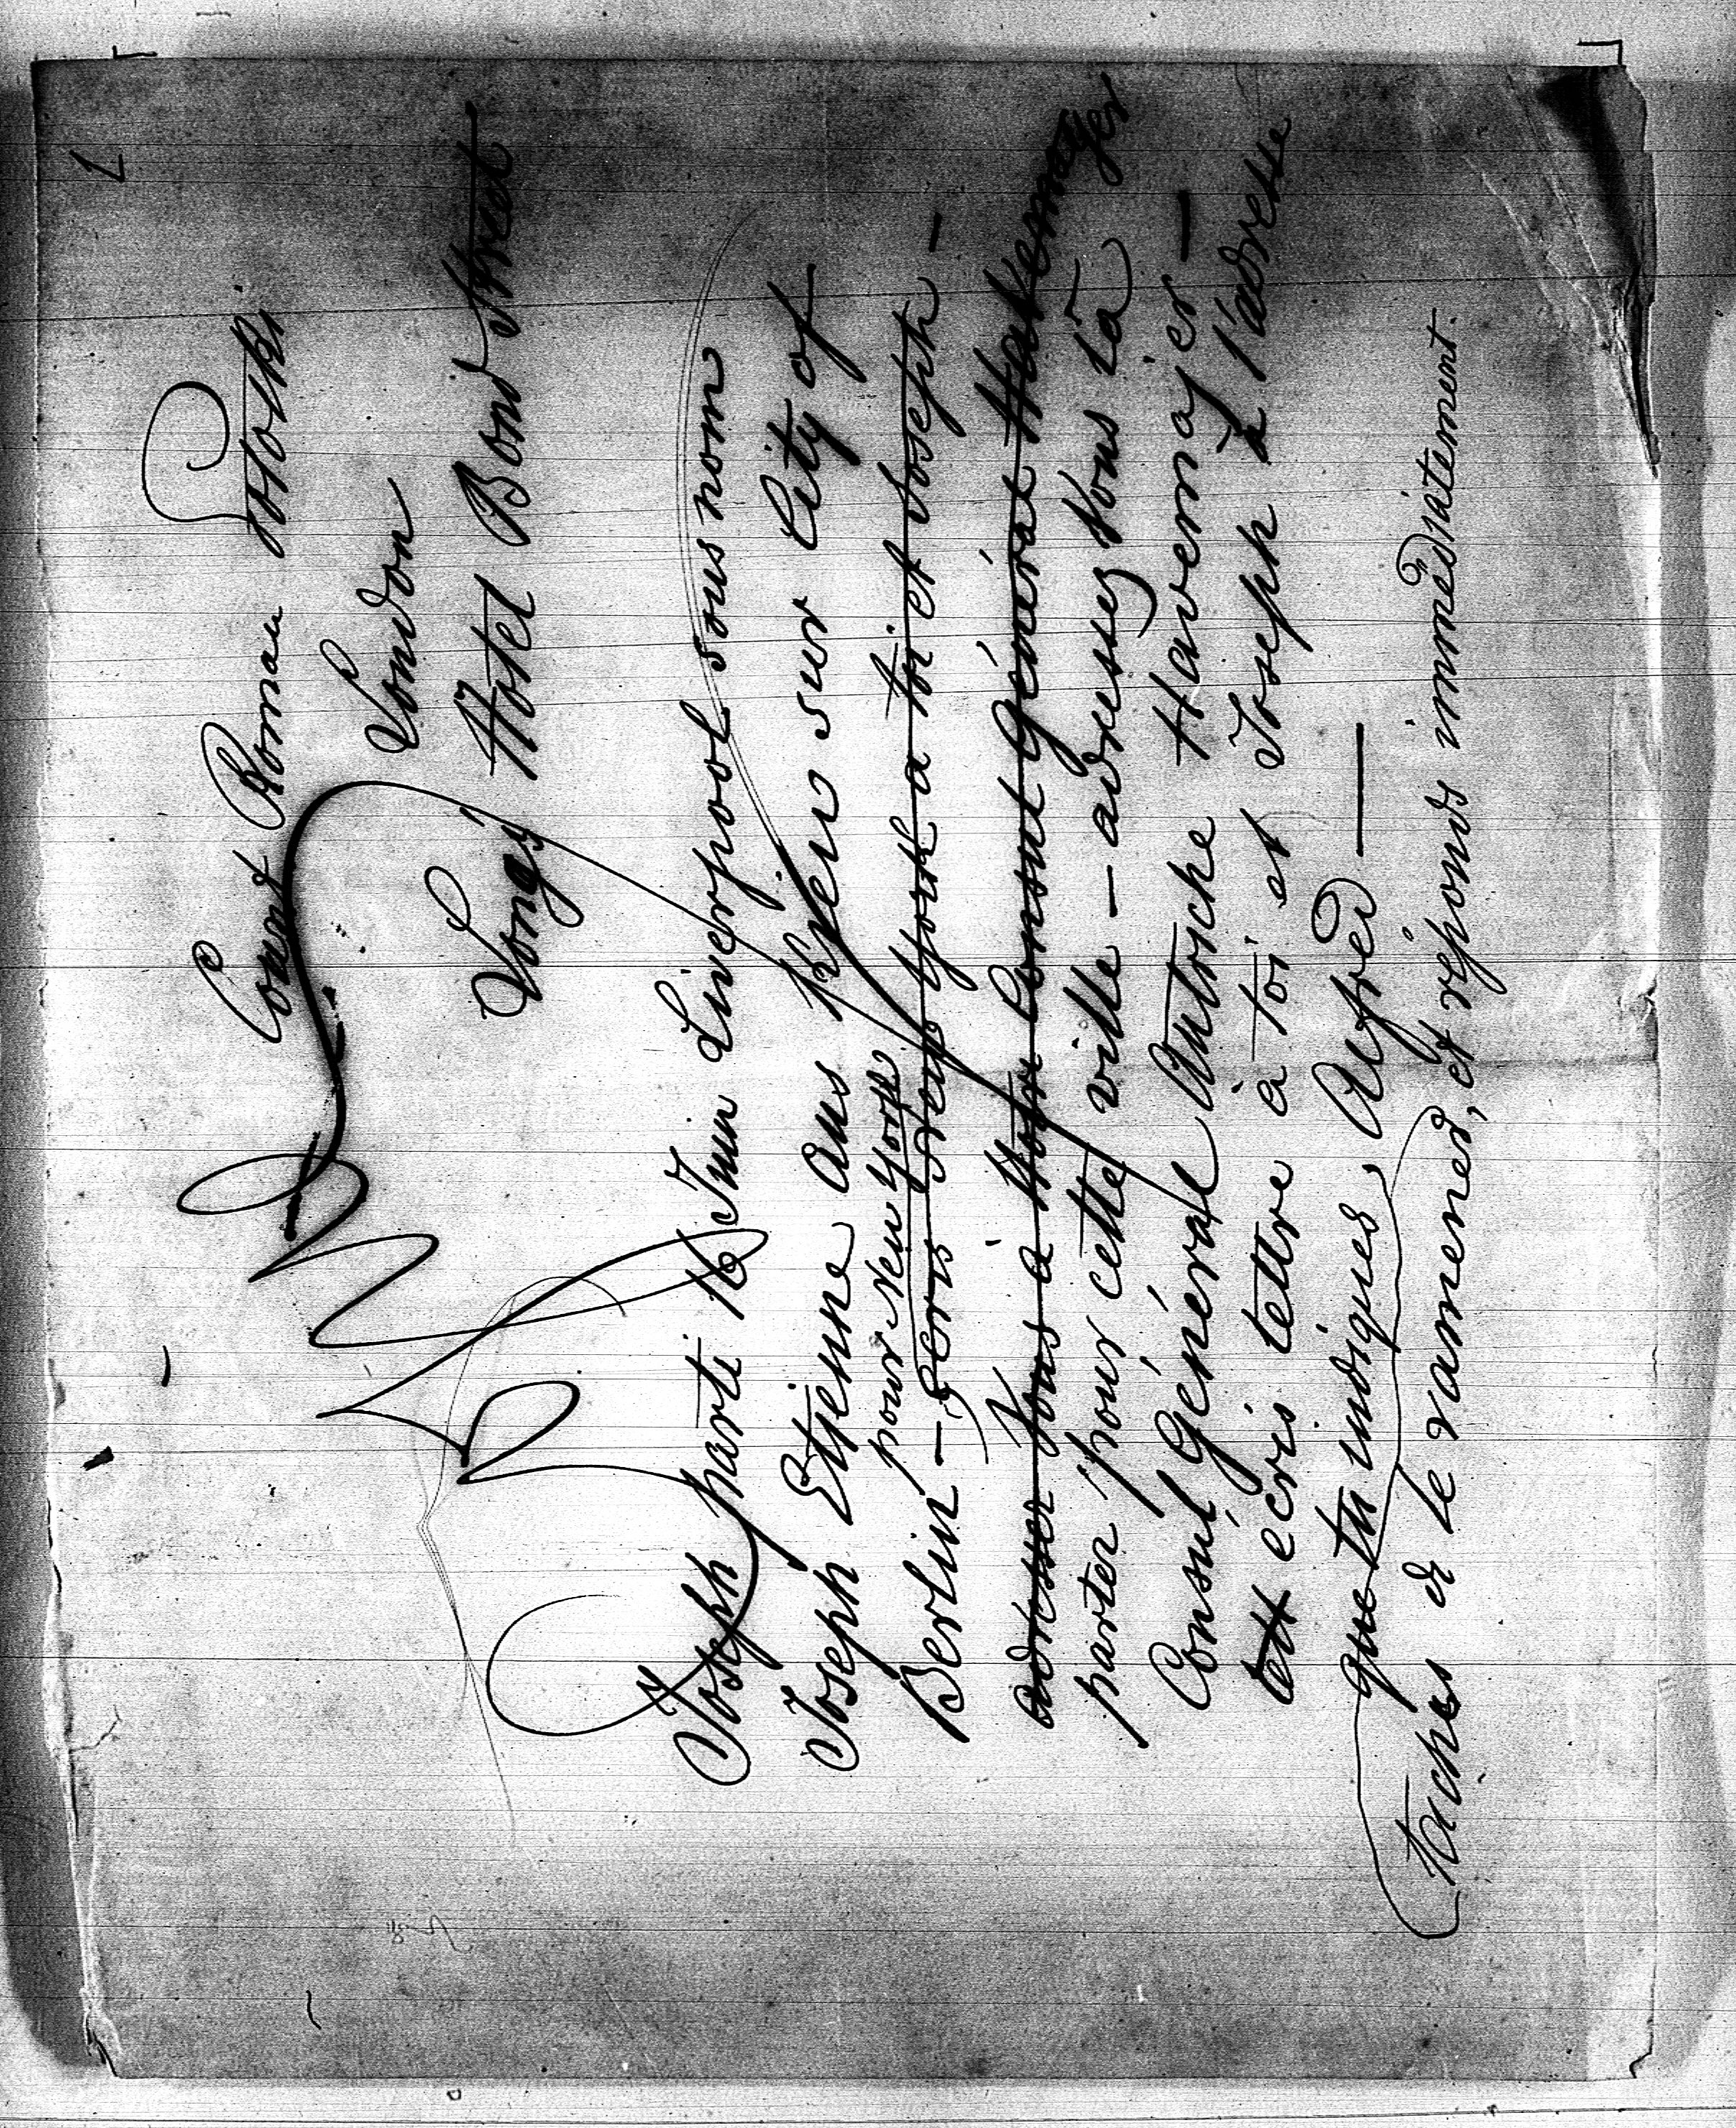 1
Count Roman Potocki
London
Long's Hotel Bond Street
Joseph parti 16 Juin Liverpool sous nom
Joseph Etienne aus Wien sur City of
pour New York
Berlin — Ecris New York à toi et Joseph —
adresser Vous à Notre Consul Général Havemeyer
parter pour cette ville — adressez Vous là
Consul Générale Autriche Havemajer —
écris lettre à toi et Joseph à l'adresse
que tu indiques, Alfred —
taches d le ramener, et réponds immédiatement.